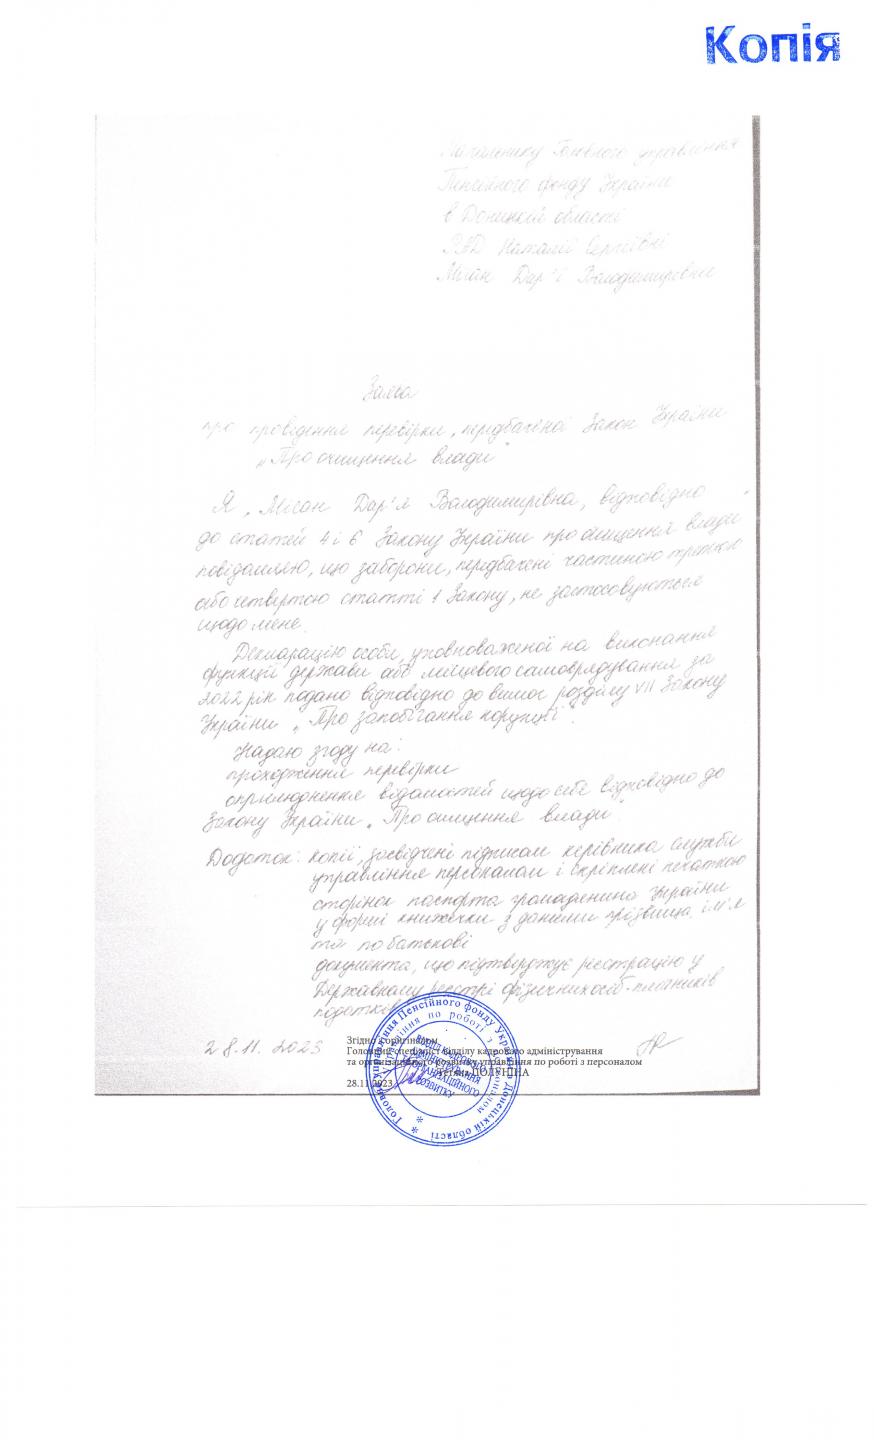 Копія
Начальнику Головного управління
Пенсійного фонду України
в Донецькій області
РАД Наталії Сергіївні
Міган Дар'ї Володимирівни
Заява
про проведення перевірки, передбаченої Закон України
„Про очищення влади"
Я, Міган Дар'я Володимирівна, відповідно
до статей 4 і 6 Закону України про очищення влади"
повідомляю, що заборони, передбачені частиною третьою
або четвертою статті 1 Закону, не застосовуються
щодо мене.
Декларацію особи, уповноваженої на виконання
функцій держави або місцевого самоврядування за
2022 рік подано відповідно до вимог розділу VII Закону
України „Про запобігання корупції".
Надаю згоду на:
проходження перевірки
оприлюднення відомостей щодо себе відповідно до
Закону України „Про очищення влади".
Додаток: копії, засвідчені підписом керівника служби
управління персоналом і скріплені печаткою
сторінок паспорта громадянина України
у формі книжечки з даними прізвища, ім'я
та по батькові
документа, що підтверджує реєстрацію у
Державному реєстрі фізичних осіб-платників
податків
28.11.2023
Згідно з оригіналом
Головний спеціаліст відділу кадрового адміністрування
та організаційного розвитку управління по роботі з персоналом
Тетяна ПОЛУНІНА
28.11.2023
Головне управління Пенсійного фонду України в Донецькій області
управління по роботі з персоналом
ВІДДІЛ КАДРОВОГО
АДМІНІСТРУВАННЯ
ТА ОРГАНІЗАЦІЙНОГО
РОЗВИТКУ